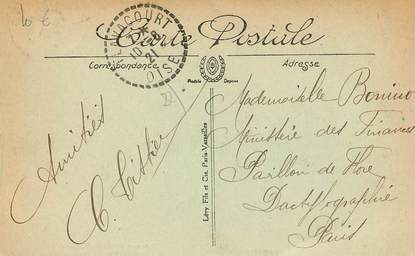 10 €
Carte Postale
Correspondance
Adresse
Modèle Déposé
OISE
21
Amitiés
Mademoiselle Bonino
Ministère des Finances
Pavillon de Flore
Dactylographie
Paris
Lévy Fils et Cie, Paris-Versailles